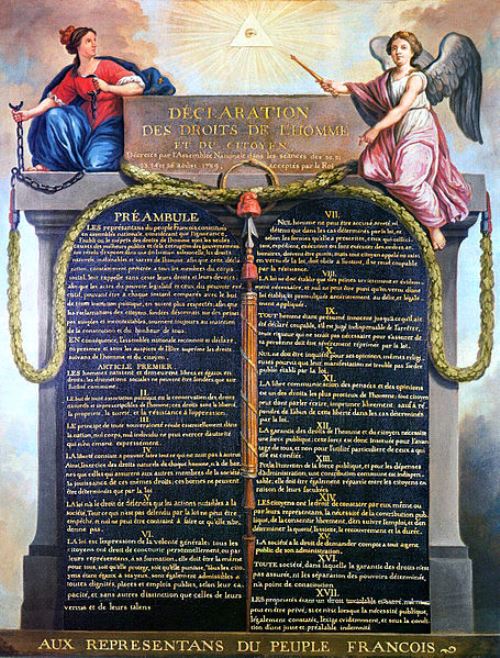 DÉCLARATION
DES DROITS DE L'HOMME
ET DU CITOYEN,
Décrétés par l'Assemblée Nationale dans les séances des 20, 21
23, 24 et 26 août 1789, acceptés par le Roi
PRÉAMBULE
LES représentans du peuple François, constitués
en assemblée nationale, considérant que l'ignorance,
l'oubli ou le mépris des droits de l'homme sont les seules
causes des malheurs publics et de la corruption des gouvernemens
ont résolu d'exposer dans une déclaration solemnelle, les droits
naturels, inaliénables et sacrés de l'homme; afin que cette dé-
claration, constamment présente à tous les membres du corps
social, leur rappelle sans cesse leurs droits et leurs devoirs;
afin que les actes du pouvoir législatif et ceux du pouvoir exé-
cutif, pouvant être à chaque instant comparés avec le but
de toute institution politique, en soient plus respectés; afin que
les réclamations des citoyens, fondées désormais sur des princi-
pes simples et incontestables, tournent toujours au maintien
de la constitution et du bonheur de tous.
EN conséquence, l'assemblée nationale reconnoit et déclare,
en présence et sous les auspices de l'Être suprême les droits
suivans de l'homme et du citoyen.
ARTICLE PREMIER.
LES hommes naissent et demeurent libres et égaux en
droits, les distinctions sociales ne peuvent être fondées que sur
l'utilité commune.
II.
LE but de toute association politique est la conservation des droits
naturels et imprescriptibles de l'homme; ces droits sont la liberté,
la propriété, la sureté, et la résistance à l'oppression.
III.
LE principe de toute souveraineté réside essentiellement dans
la nation, nul corps, nul individu ne peut exercer d'autorité
qui n'en émane expressement.
IV.
LA liberté consiste à pouvoir faire tout ce qui ne nuit pas à autrui
Ainsi, l'exercice des droits naturels de chaque homme, n'a de bor-
nes que celles qui assurent aux autres membres de la société
la jouissance de ces mêmes droits; ces bornes ne peuvent
être déterminées que par la loi
V.
LA loi n'a le droit de défendre que les actions nuisibles à la
société. Tout ce qui n'est pas défendu par la loi ne peut être
empêché, et nul ne peut être contraint à faire ce qu'elle n'or-
donne pas.
VI.
LA loi est l'expression de la volonté générale; tous les
citoyens ont droit de concourir personnellement ou par
leurs représentans, à sa formation; elle doit être la même
pour tous, soit qu'elle protege, soit qu'elle punisse. Tous les cito-
yens étant égaux à ses yeux, sont également admissibles à
toutes dignités, places et emplois publics, selon leur ca-
pacité, et sans autres distinction que celles de leurs
vertus et de leurs talens
VII.
NUL homme ne peut être accusé, arreté, ni
détenu que dans les cas déterminés par la loi, et
selon les formes qu'elle a prescrites, ceux qui sollici-
tent, expédient, exécutent ou font exécuter des ordres ar-
bitraires, doivent être punis; mais tout citoyen appelé ou saisi
en vertu de la loi, doit obéir à l'instant, il se rend coupable
par la résistance.
VIII.
LA loi ne doit établir que des peines strictement et évidem-
ment nécessaire, et nul ne peut être puni qu'en vertu d'une
loi établie et promulguée antérieurement au délit, et légale-
ment appliquée.
IX.
TOUT homme étant présumé innocent jusqu'à ce qu'il ait
été déclaré coupable, s'il est jugé indispensable de l'arrêter,
toute rigueur qui ne serait pas nécessaire pour s'assurer de
sa personne doit être sévèrement réprimée par la loi.
X.
NUL ne doit être inquiété pour ses opinions, mêmes religi-
euses pourvu que leur manifestation ne trouble pas l'ordre
public établi par la loi.
XI.
LA libre communication des pensées et des opinions
est un des droits les plus précieux de l'homme; tout citoyen
peut donc parler, écrire, imprimer librement; sauf à ré-
pondre de l'abus de cette liberté dans les cas déterminés
par la loi.
XII.
LA garantie des droits de l'homme et du citoyen nécessite
une force publique; cette force est donc instituée pour l'avan-
tage de tous, et non pour l'utilité particulière de ceux à qui
elle est confiée.
XIII.
POUR l'entretien de la force publique, et pour les dépenses
d'administration, une contribution commune est indispen-
sable; elle doit être également répartie entre les citoyens en
raison de leurs facultés.
XIV.
LES citoyens ont le droit de constater par eux même ou
par leurs représentans, la nécessité de la contribution pub-
lique, de la consentir librement, d'en suivre l'emploi, et d'en
déterminer la quotité, l'assiette, le recouvrement et la durée.
XV.
LA société a le droit de demander compte à tout agent
public de son administration.
XVI.
TOUTE société, dans laquelle la garantie des droits n'est
pas assurée, ni la séparation des pouvoirs déterminée,
n'a point de constitution
XVII.
LES propriétés étant un droit inviolable et sacré, nul ne
peut en être privé, si ce n'est lorsque la nécessité publique,
légalement constatée, l'exige evidemment, et sous la condi-
tion d'une juste et préalable indemnité
AUX REPRESENTANS DU PEUPLE FRANCOIS